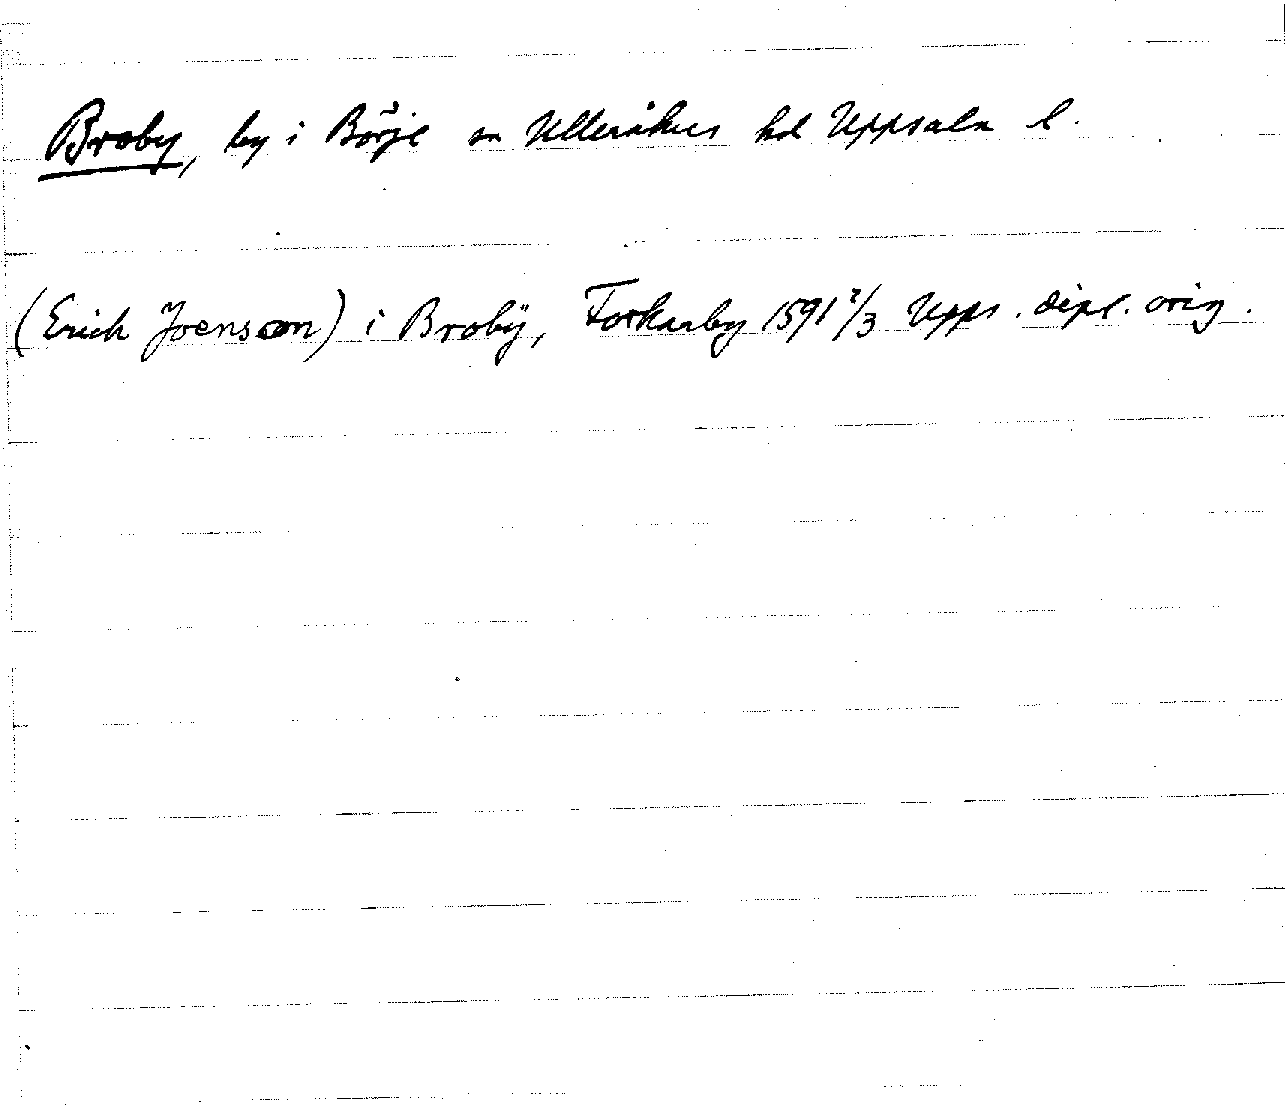 Broby, by i Börje sn Ulleråkers hd Uppsala l.
(Erich Joensson) i Brobÿ, Forkarby 1591 2/3 Upps. dipl. orig.